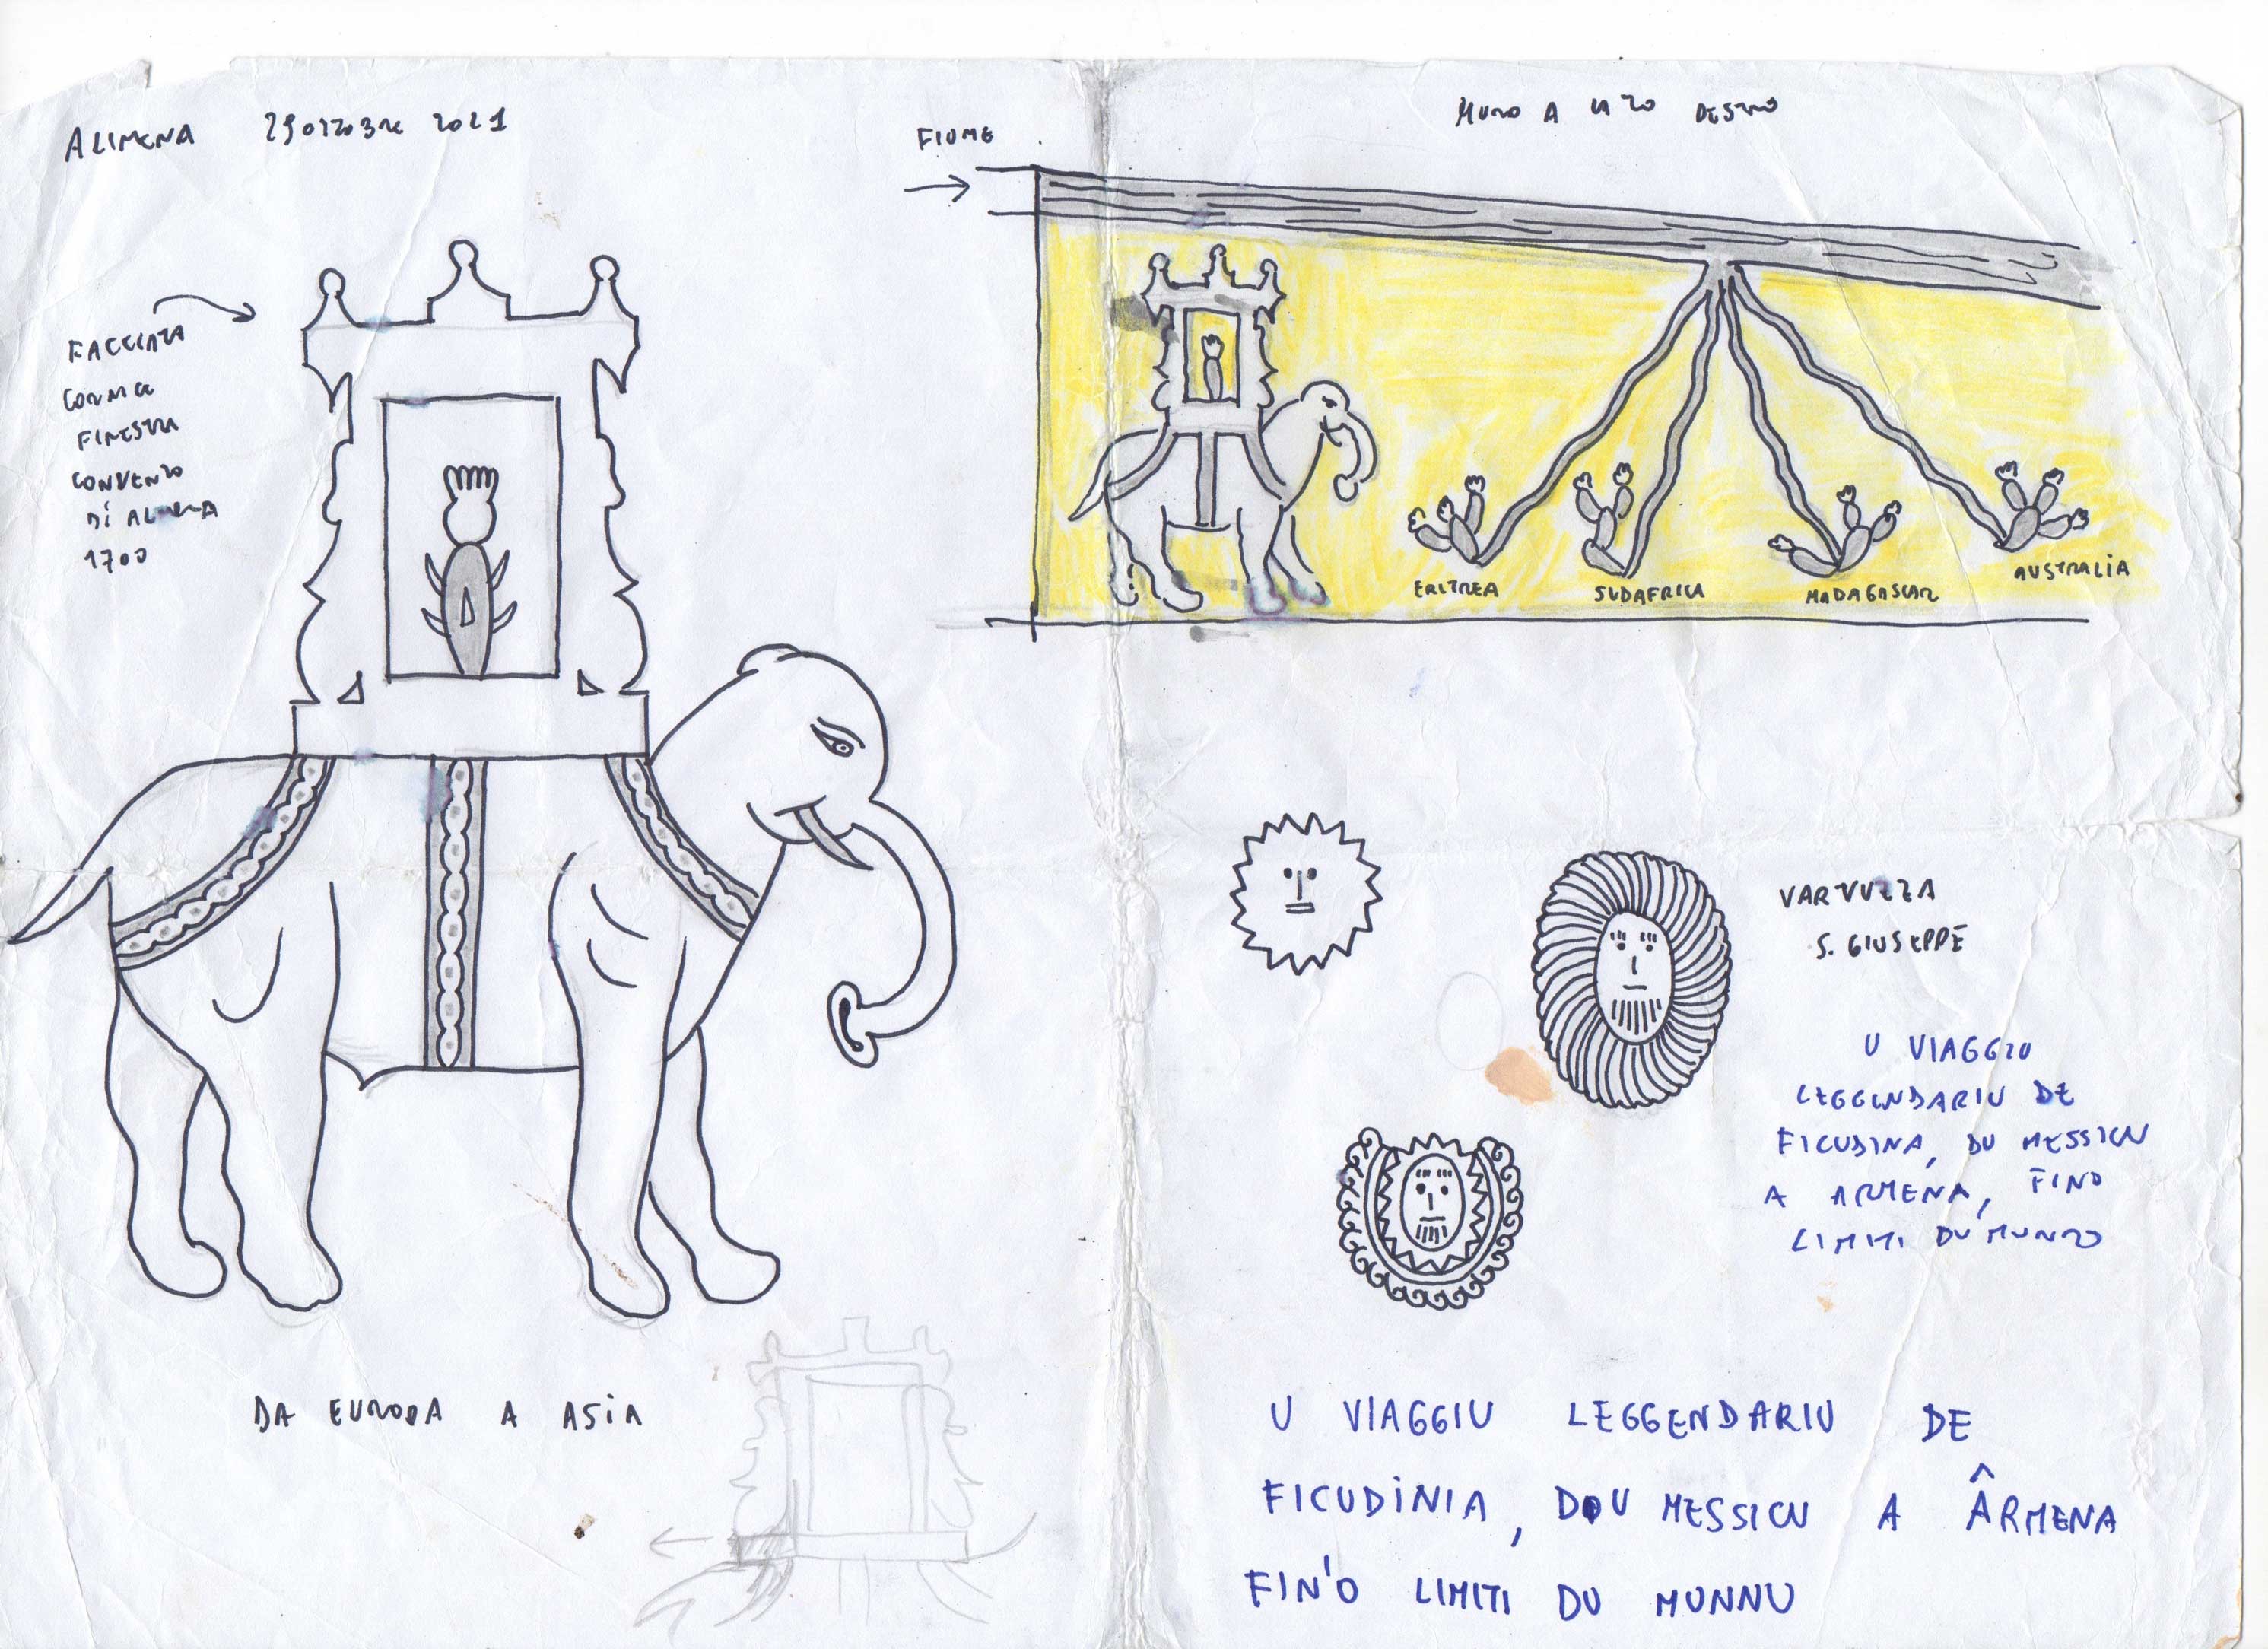 ALIMENA 29 OTTOBRE 2021
FACCIATA
CORNICE
FINESTRA
CONVENTO
DI ALIMENA
1700
DA EUROPA A ASIA
MURO A LATO DESTRO
FIUME
ERITREA
SUDAFRICA
MADAGASCAR
AUSTRALIA
VARVUZZA
S. GIUSEPPE
U VIAGGIU
LEGGENDARIU DE
FICUDINA, DU MESSICU
A ARMENA, FINO
LIMITI DU MUNNO
U VIAGGIU LEGGENDARIU DE
FICUDINIA, DOU MESSICU A ÂRMENA
FIN'O LIMITI DU MUNNU